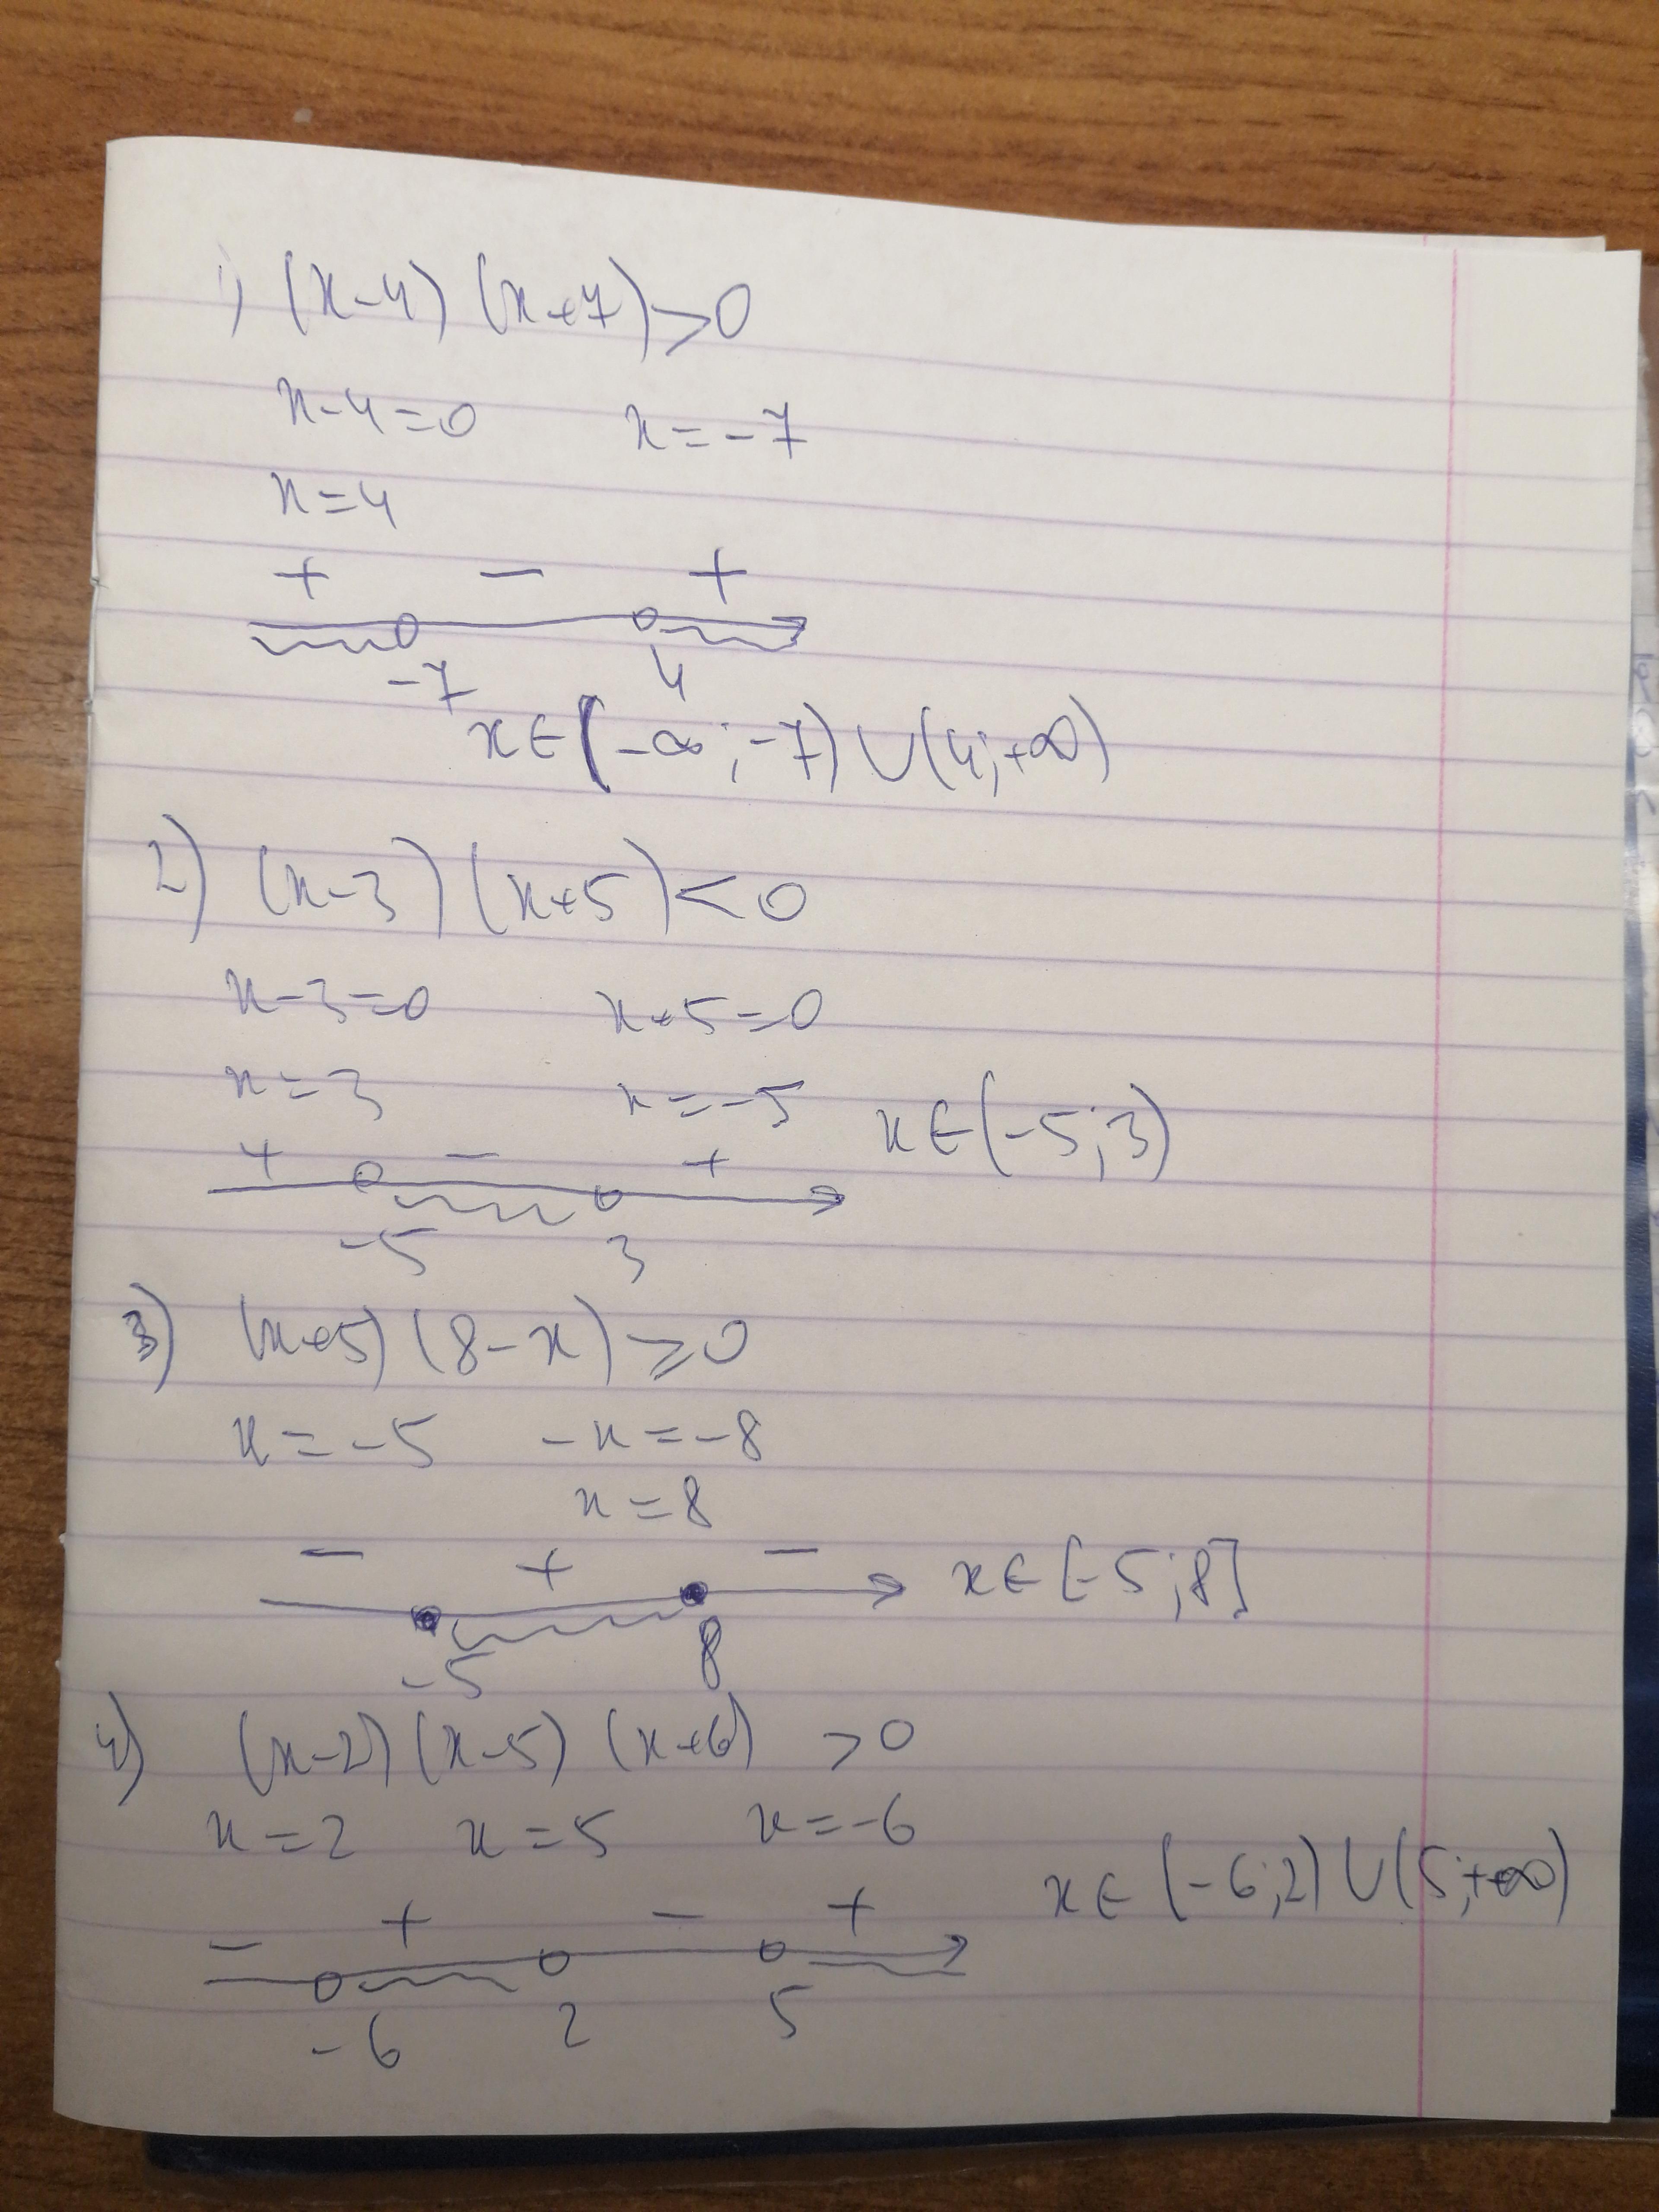 1) (x-4) (x+7)>0
x-4=0 x=-7
x=4
+ - +
-7 4
x∈(-∞;-7)∪(4;+∞)
2) (x-3) (x+5)<0
x-3=0 x+5=0
x=3 x=-5
x∈(-5;3)
+ - +
-5 3
3) (x+5) (8-x)≥0
x=-5 -x=-8
x=8
- + -
x∈[-5;8]
-5 8
4) (x-2) (x-5) (x+6) >0
x=2 x=5 x=-6
x∈(-6;2)∪(5;+∞)
- + - +
-6 2 5